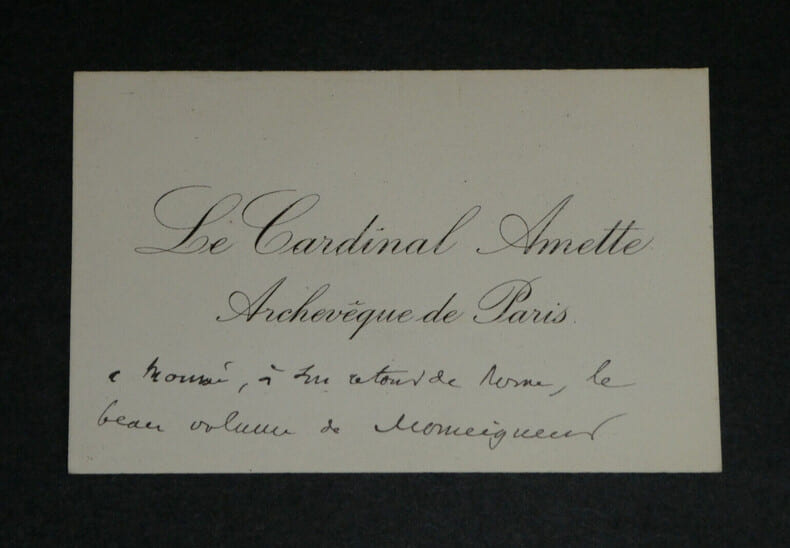 Le Cardinal Amette
Archevêque de Paris
a trouvé, à son retour de Rome, le
beau volume de Monseigneur